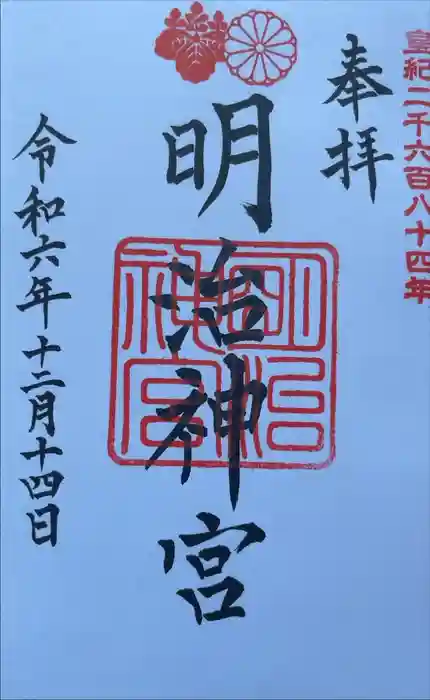 皇紀二千六百八十四年
奉拝
明治神宮
明治神宮
令和六年十二月十四日